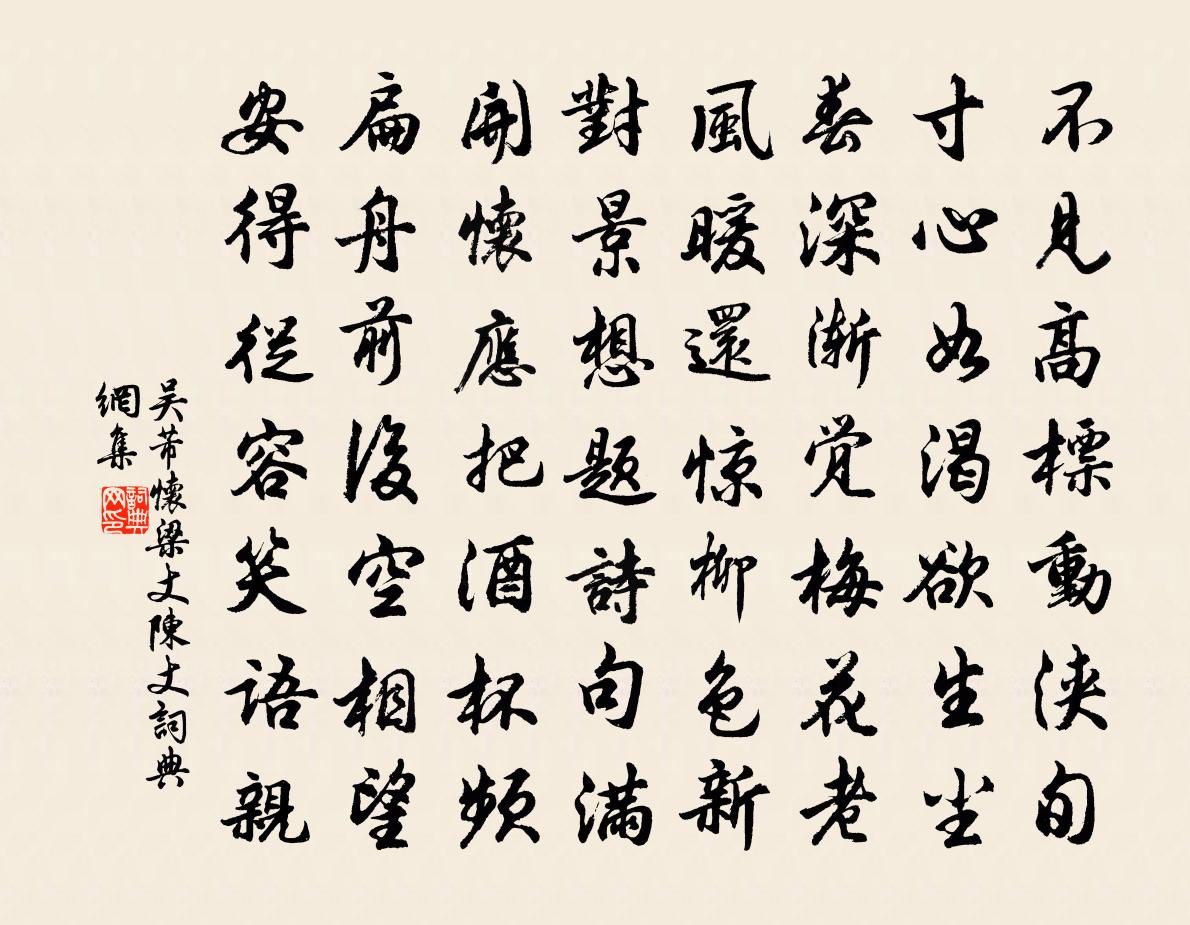 不見高標動浹旬
寸心如渴欲生尘
春深渐覚梅花老
風暖還惊柳色新
對景想题詩句满
開懷應把酒杯频
扁舟前後空相望
安得從容笑语親
吴芾懷梁丈陳丈詞典
網集
詞典
网印